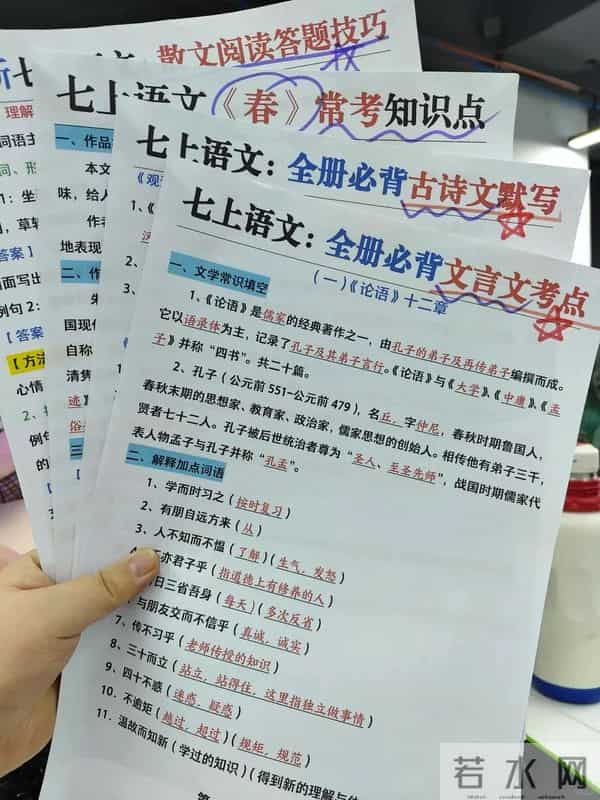 散文阅读答题技巧
七上语文《春》常考知识点
七上语文：全册必背古诗文默写
七上语文：全册必背文言文考点
（一）《论语》十二章
一、文学常识填空
1、《论语》是儒家的经典著作之一，由孔子的弟子及再传弟子编撰而成。
它以语录体为主，记录了孔子及其弟子言行。《论语》与《大学》《中庸》《孟
子》并称“四书”。共二十篇。
2、孔子（公元前 551-公元前 479），名丘，字仲尼，春秋时期鲁国人，
春秋末期的思想家、教育家、政治家，儒家思想的创始人。相传他有弟子三千，
贤者七十二人。孔子被后世统治者尊为“圣人、至圣先师”，战国时期儒家代
表人物孟子与孔子并称“孔孟”。
二、解释加点词语
1、学而时习之（按时复习）
2、有朋自远方来（从）
3、人不知而不愠（了解）（生气，发怒）
亦君子乎（指道德上有修养的人）
日三省吾身（每天）（多次反省）
与朋友交而不信乎（真诚，诚实）
7、传不习乎（老师传授的知识）
8、三十而立（站立，站得住，这里指独立做事情）
9、四十不惑（迷惑，疑惑）
10、不逾矩（越过，超过）（规矩，规范）
11、温故而知新（学过的知识）（得到新的理解与
一、作品
本文
味，给人
作者
地表现
二、作
国现代
自称
清隽
三
理解
词语主
【答案】
例句 2：
【答案
【方法
心情
例句
的
若水网